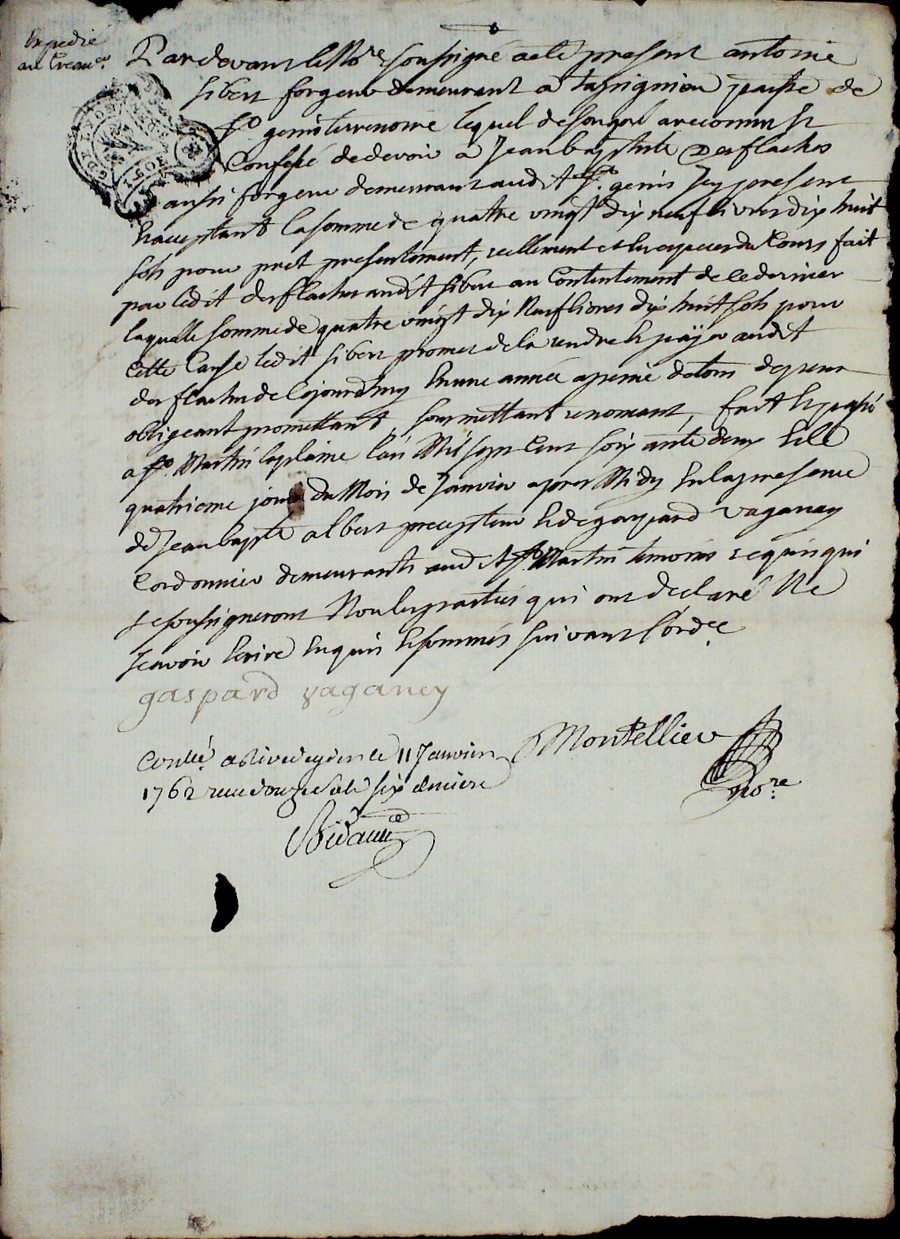 Expedié
au Crean.er
Pardevant le No.re soussigné a eté present antoine
sibert forgeur demeurant a tassignieu paroisse de
S.t genis terrenoire lequel de son gré a reconnu et
Confessé de devoir a Jean baptiste desflaches
aussi forgeur demeurant audit S.t genis icy present
et acceptant la somme de quatre vingt dix neuf livres dix huit
sols pour pret presentement, reellement et en especes du Cours fait
par ledit desflaches audit sibert au Contentement de ce dernier
laquelle somme de quatre vingt dix Neuf livres dix huit sols pour
cette Cause ledit sibert promet de la rendre et payer audit
des flaches de cejourdhuy en une année a peine de tous depens
obligeant promettant, soumettant renonceant, fait et passé
a S.t Martin la plaine l'an Mil sept Cent soixante deux et le
quatrieme jour du Mois de Janvier apres Midy en la presence
de Jean bapte albert precepteur et de gaspard vaganay
Cordonnier demeurants audit S.t Martin temoins requis qui
se soussigneront Non les parties qui ont declaré Ne
scavoir Ecrire enquis et sommés suivant l'ord.ce
gaspard vaganey
Montellier
no.re
Conllé a Rivedegier le 11 Janvier
1762 reçu douze sols six deniers